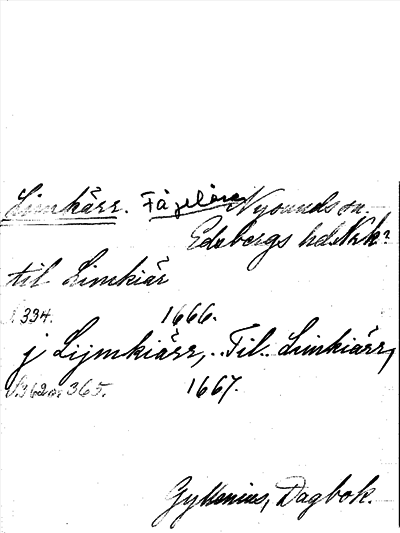 Limkärr. Fågelöre Nysunds sn.
Edsbergs hd. Nrk?
til Limkiär
S. 334. 1666.
j Lijmkiärr, .. Til Limkiärr,
S. 362 o. 365. 1667.
Gyllenius, Dagbok.